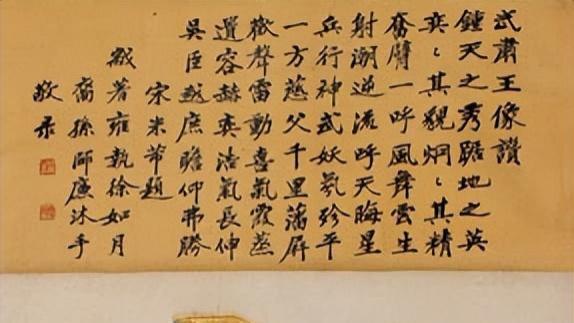 武肅王像讚
鍾天之秀踞地之英
奕〻其貌炯〻其精
奮臂一呼風舞雲生
射潮逆流呼天晦星
兵行神武妖氛殄平
一方慈父千里藩屏
歡聲雷動喜氣霞蒸
遺容赫奕浩氣長伸
吳臣越庶瞻仰弗勝
宋米芾題
歲著雍執徐如月
裔孫師廉沐手
敬录